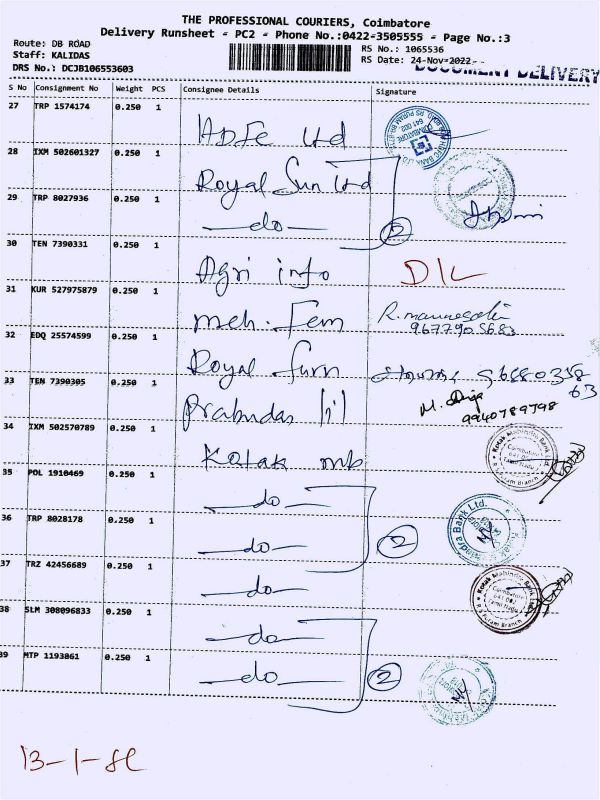 THE PROFESSIONAL COURIERS, Coimbatore
Delivery Runsheet - PC2 - Phone No.:0422-3505555 - Page No.:3
Route: DB ROAD
Staff: KALIDAS
DRS No.: DCJB106553603
RS No.: 1065536
RS Date: 24-Nov-2022
DOCUMENT DELIVERY
S No Consignment No Weight PCS Consignee Details Signature
27 TRP 1574174 0.250 1
HDFC Ltd
28 IXM 502601327 0.250 1
Royal Sun Ltd
29 TRP 8027936 0.250 1
do 2
30 TEN 7390331 0.250 1
Agri info D/L
31 KUR 527975879 0.250 1
meh. Fem
9677905683
32 EDQ 25574599 0.250 1
Royal Furn
33 TEN 7390305 0.250 1
Prabudas M.
9940789798
34 IXM 502570789 0.250 1
Kotak mb
Kotak Mahindra Bank Ltd.
R.S Puram Branch
35 POL 1910469 0.250 1
do
36 TRP 8028178 0.250 1
do 2
37 TRZ 42456689 0.250 1
do
Kotak Mahindra Bank Ltd.
R.S Puram Branch
38 SLM 308096833 0.250 1
do
39 MTP 1193861 0.250 1
do 2
13-1-